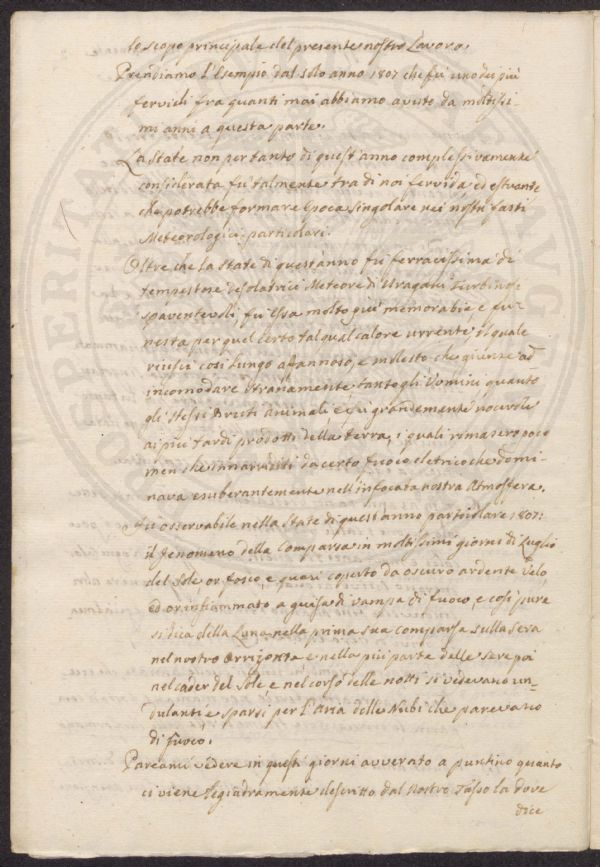 lo scopo principale del presente nostro Lavoro.
Prendiamo l'Esempio dal solo anno 1807 che fù uno dei più
fervidi fra quanti mai abbiamo avuto da moltissi-
mi anni a questa parte.
La State non per tanto di quest'anno complessivamente
considerata fù talmente tra di noi fervida ed estuante
che potrebbe formare Epoca singolare nei nostri fasti
Meteorologici particolari.
Oltre che la State di quest'anno fù ferracissima di
tempestose desolatrici Meteore di Uragani Turbinosi
spaventevoli, fù Essa molto più memorabile e fu-
nesta per quel certo tal qual calore urrente, il quale
riuscì così lungo affannoso, e molesto che giunse ad
incomodare stranamente tanto gli Uomini quanto
gli stessi Bruti animali e fù grandemente nocivole
ai più tardi prodotti della terra, i quali rimasero poco
men che innariditi da certo fuoco eletrico che domi-
nava esuberantemente nell'infocata nostra Atmosfera.
Fù osservabile nella State di quest'anno particolare 1807:
il fenomeno della Comparsa in moltissimi giorni di Luglio
del Sole or fosco, e quasi coperto da oscuro ardente velo
ed or infiammato a guisa di vampa di fuoco, e così pure
si dica della Luna nella prima sua comparsa sulla sera
nel nostro Orrizonte, e nella più parte delle sere poi
nel cader del Sole, e nel corso delle notti si vedevano un-
dulanti e sparsi per l'Aria delle Nubi che parevano
di fuoco.
Pareami vedere in questi giorni avverato a puntino quanto
ci viene legiadramente descritto dal Nostro Tasso la dove
dice